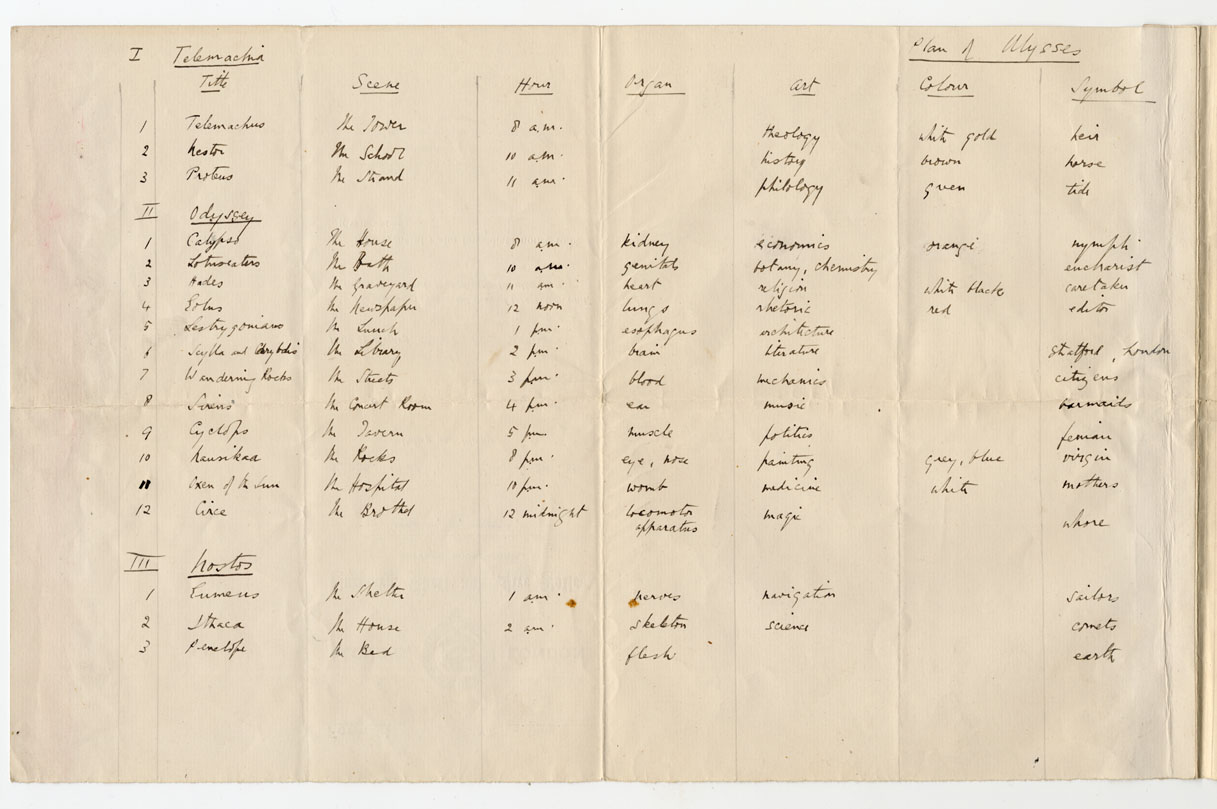 I Telemachia Plan of Ulysses
Title Scene Hour Organ Art Colour Symbol
1 Telemachus The Tower 8 a.m. theology white gold heir
2 Nestor The School 10 a.m. history brown horse
3 Proteus The Strand 11 a.m. philology green tide
II Odyssey
1 Calypso The House 8 a.m. kidney economics orange nymph
2 Lotuseaters The Bath 10 a.m. genitals botany, chemistry eucharist
3 Hades The Graveyard 11 a.m. heart religion white black caretaker
4 Eolus The Newspaper 12 noon lungs rhetoric red editor
5 Lestrygonians The Lunch 1 p.m. esophagus architecture
6 Scylla and Charybdis The Library 2 p.m. brain literature Stratford, London
7 Wandering Rocks The Streets 3 p.m. blood mechanics citizens
8 Sirens The Concert Room 4 p.m. ear music barmaids
9 Cyclops The Tavern 5 p.m. muscle politics fenian
10 Nausikaa The Rocks 8 p.m. eye, nose painting grey, blue virgin
11 Oxen of the Sun The Hospital 10 p.m. womb medicine white mothers
12 Circe The Brothel 12 midnight locomotor apparatus magic whore
III Nostos
1 Eumeus The Shelter 1 a.m. nerves navigation sailors
2 Ithaca The House 2 a.m. skeleton science comets
3 Penelope The Bed flesh earth